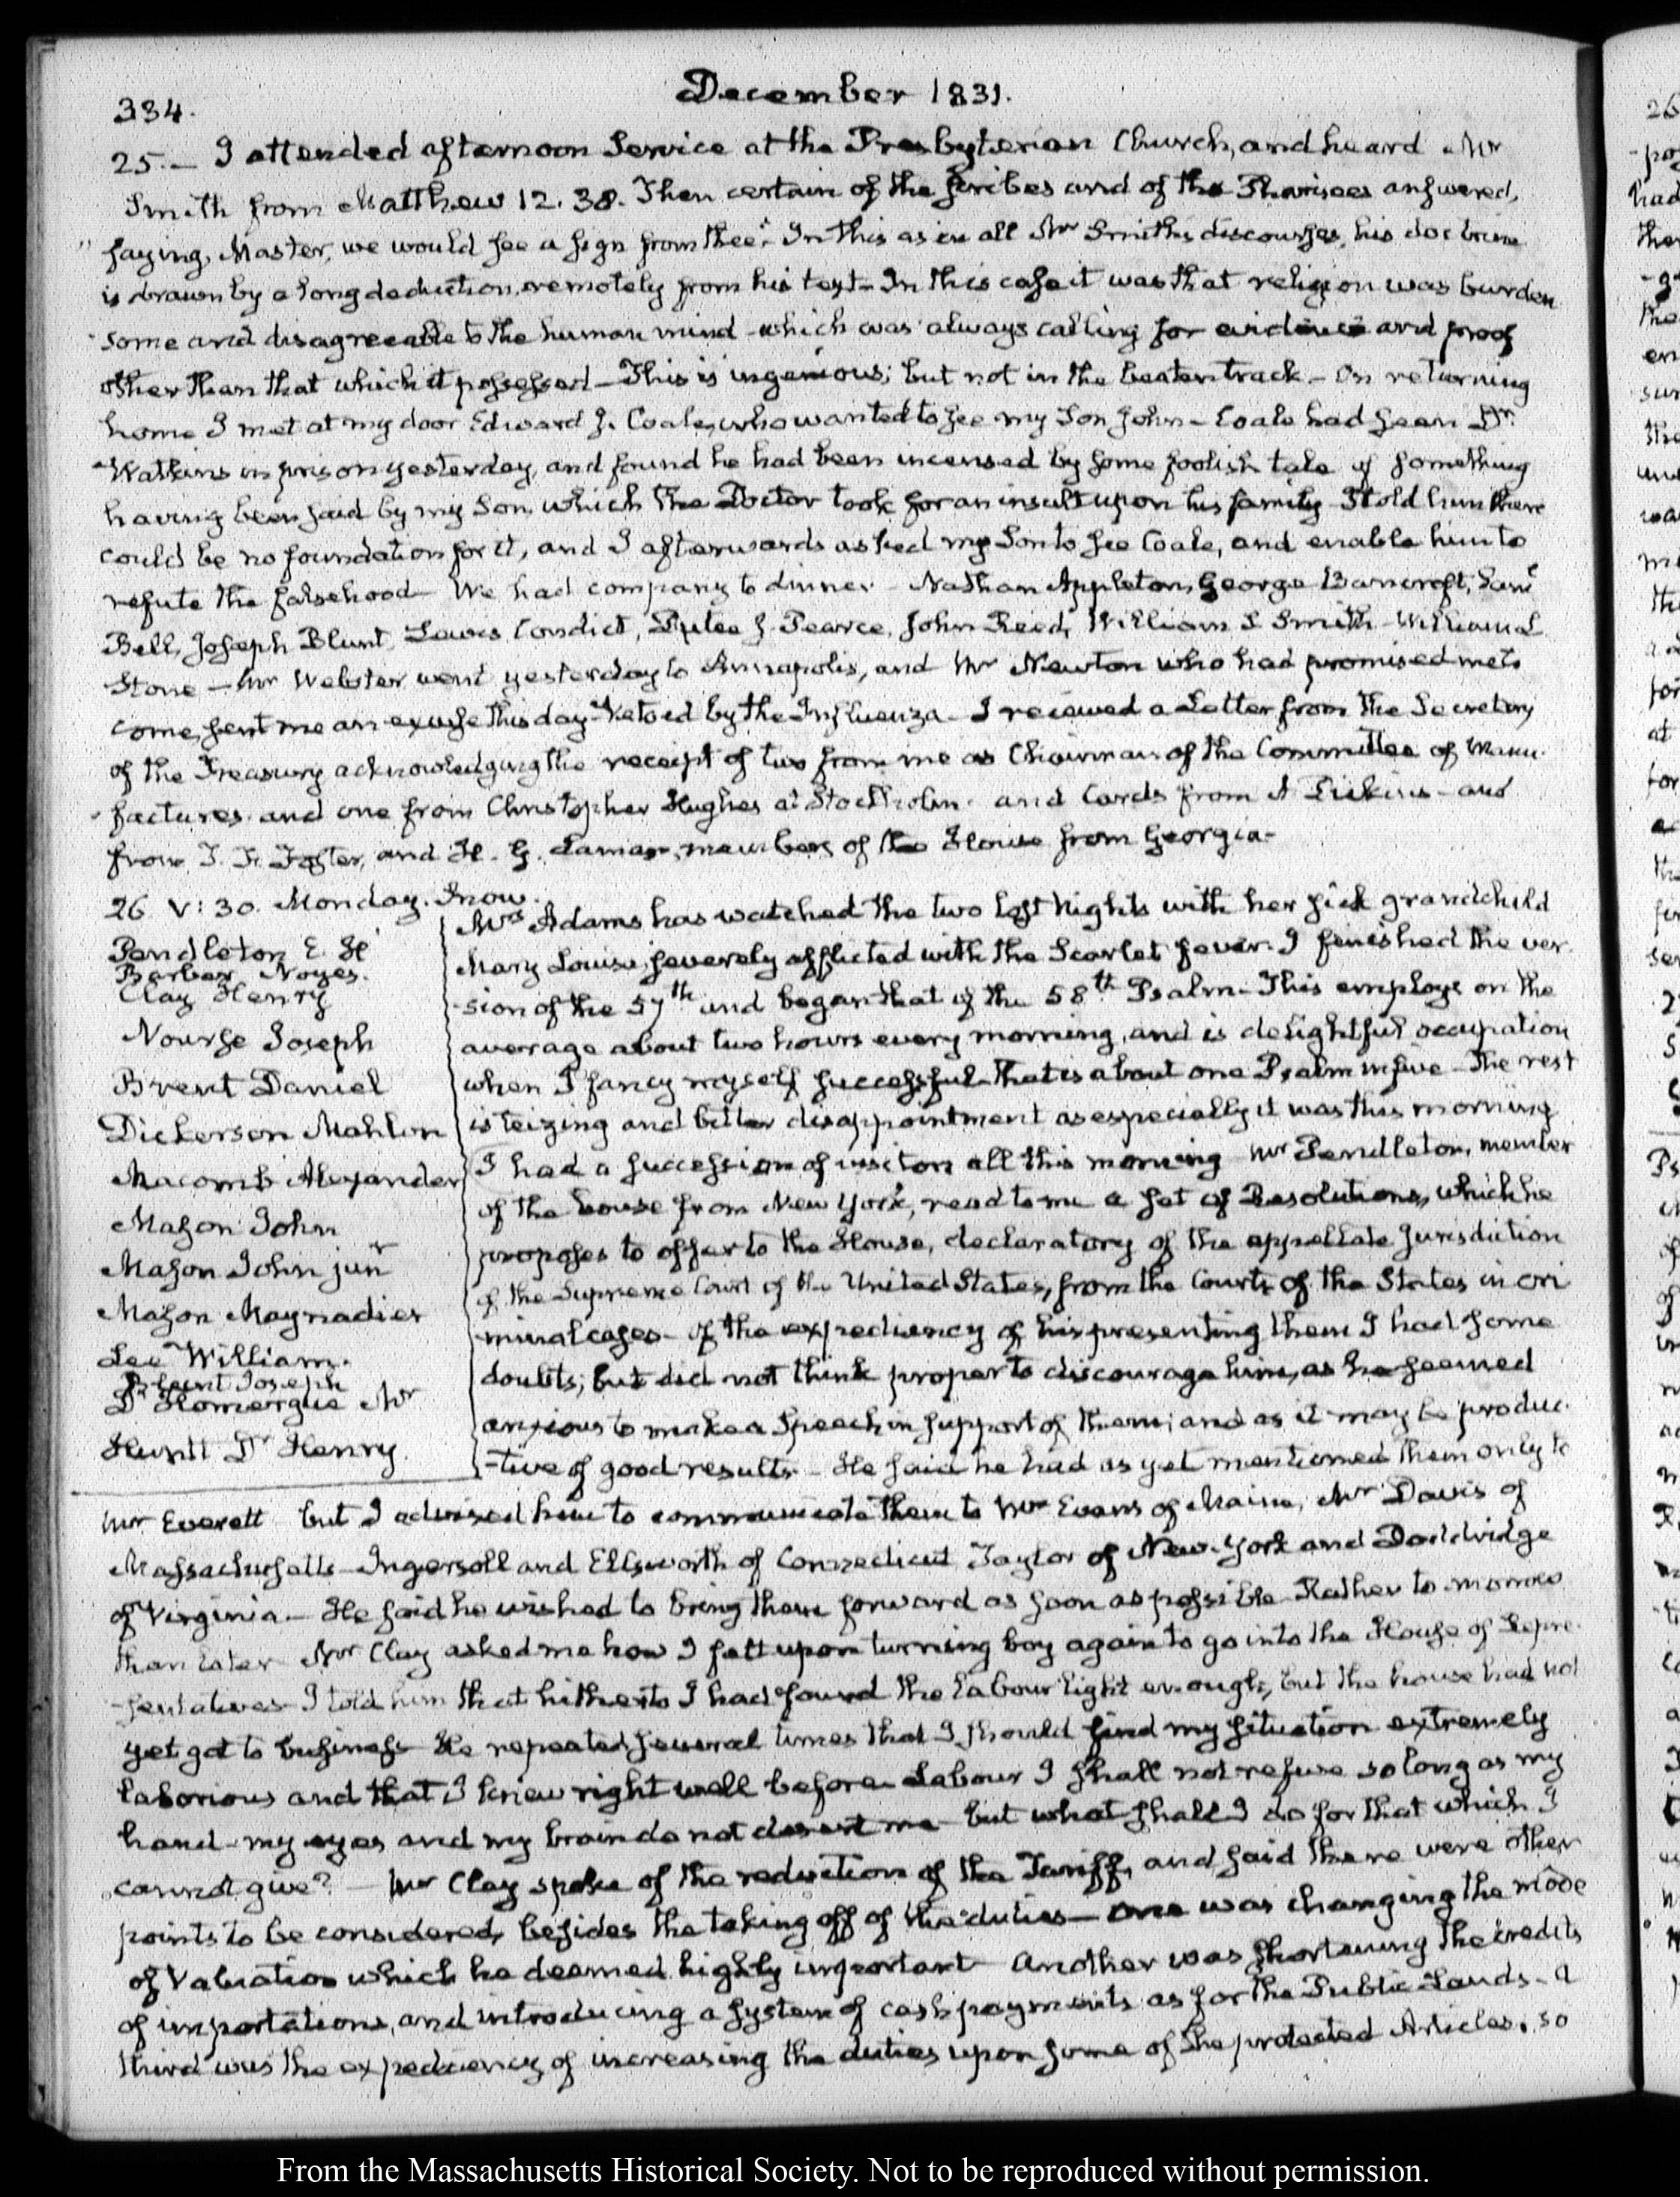 334.
December 1831.
25.— I attended afternoon Service at the Presbyterian Church, and heard Mr
Smith from Matthew 12. 38. Then certain of the scribes and of the Pharisees answered,
"saying, Master, we would see a sign from thee." In this as in all Mr Smith's discourses, his doctrine
is drawn by a long deduction, remotely from his text— In this case it was that religion was burden
-some and disagreeable to the human mind—which was always calling for evidence and proof
other than that which it possessed—This is ingenious; but not in the beaten track.— On returning
home I met at my door Edward J. Coale, who wanted to see my Son John— Coale had seen Dr.
Watkins in prison yesterday, and found he had been incensed by some foolish tale of something
having been said by my Son, which the Doctor took for an insult upon his family— I told him there
could be no foundation for it, and I afterwards asked my Son to see Coale, and enable him to
refute the falsehood— We had company to dinner. Nathan Appleton, George Bancroft, Saml
Bell, Joseph Blunt, Lewis Condict, Dutee J. Pearce, John Reed, William S Smith—William L
Stone—Mr Webster went yesterday to Annapolis, and Mr Newton who had promised me to
come, sent me an excuse this day—Vetoed by the Influenza— I received a Letter from the Secretary
of the Treasury acknowledging the receipt of two from me as Chairman of the Committee of Manu-
-factures. and one from Christopher Hughes at Stockholm. and Cards from A Dickins—and
from T. F. Foster, and H. G. Lamar, members of the House from Georgia—
26. V: 30. Monday. Snow.
Pendleton E. H
Barber Noyes.
Clay Henry
Nourse Joseph
Brent Daniel
Dickerson Mahlon
Macomb Alexander
Mason John
Mason John junr
Mason Maynadier
Lee William.
Blunt Joseph
D'Homergue Mr
Huntt Dr Henry
Mrs Adams has watched the two last Nights with her sick grandchild
Mary Louisa, severely afflicted with the Scarlet fever. I finished the ver-
-sion of the 57th and began that of the 58th Psalm—This employs on the
average about two hours every morning, and is delightful occupation
when I fancy myself successful—That is about one Psalm in five—The rest
is teizing and bitter disappointment as especially it was this morning
I had a succession of visitors all this morning Mr Pendleton, member
of the house from New York, read to me a set of Resolutions, which he
proposes to offer to the House, declaratory of the appellate jurisdiction
of the Supreme Court of the United States, from the Courts of the States in cri
-minal cases— Of the expediency of his presenting them I had some
doubts; but did not think proper to discourage him, as he seemed
anxious to make a Speech in support of them; and as it may be produc-
-tive of good results.— He said he had as yet mentioned them only to
Mr Everett but I advised him to communicate them to Mr Evans of Maine, Mr Davis of
Massachusetts—Ingersoll and Ellsworth of Connecticut Taylor of New-York and Doddridge
of Virginia.— He said he wished to bring them forward as soon as possible—Rather to-morrow
than later—Mr Clay asked me how I felt upon turning boy again to go into the House of Repre-
-sentatives—I told him that hitherto I had found the labour light enough, but the house had not
yet got to business—He repeated several times that I should find my situation extremely
laborious and that I knew right well before—Labour I shall not refuse so long as my
hand—my eyes and my brain do not desert me—but what shall I do for that which I
cannot give?— Mr Clay spoke of the reduction of the Tariff, and said there were other
points to be considered, besides the taking off of the duties—one was changing the mode
of Valuation which he deemed highly important—Another was shortening the credits
of importations, and introducing a system of cash payments as for the Public Lands—A
third was the expediency of increasing the duties upon some of the protected Articles, so
From the Massachusetts Historical Society. Not to be reproduced without permission.